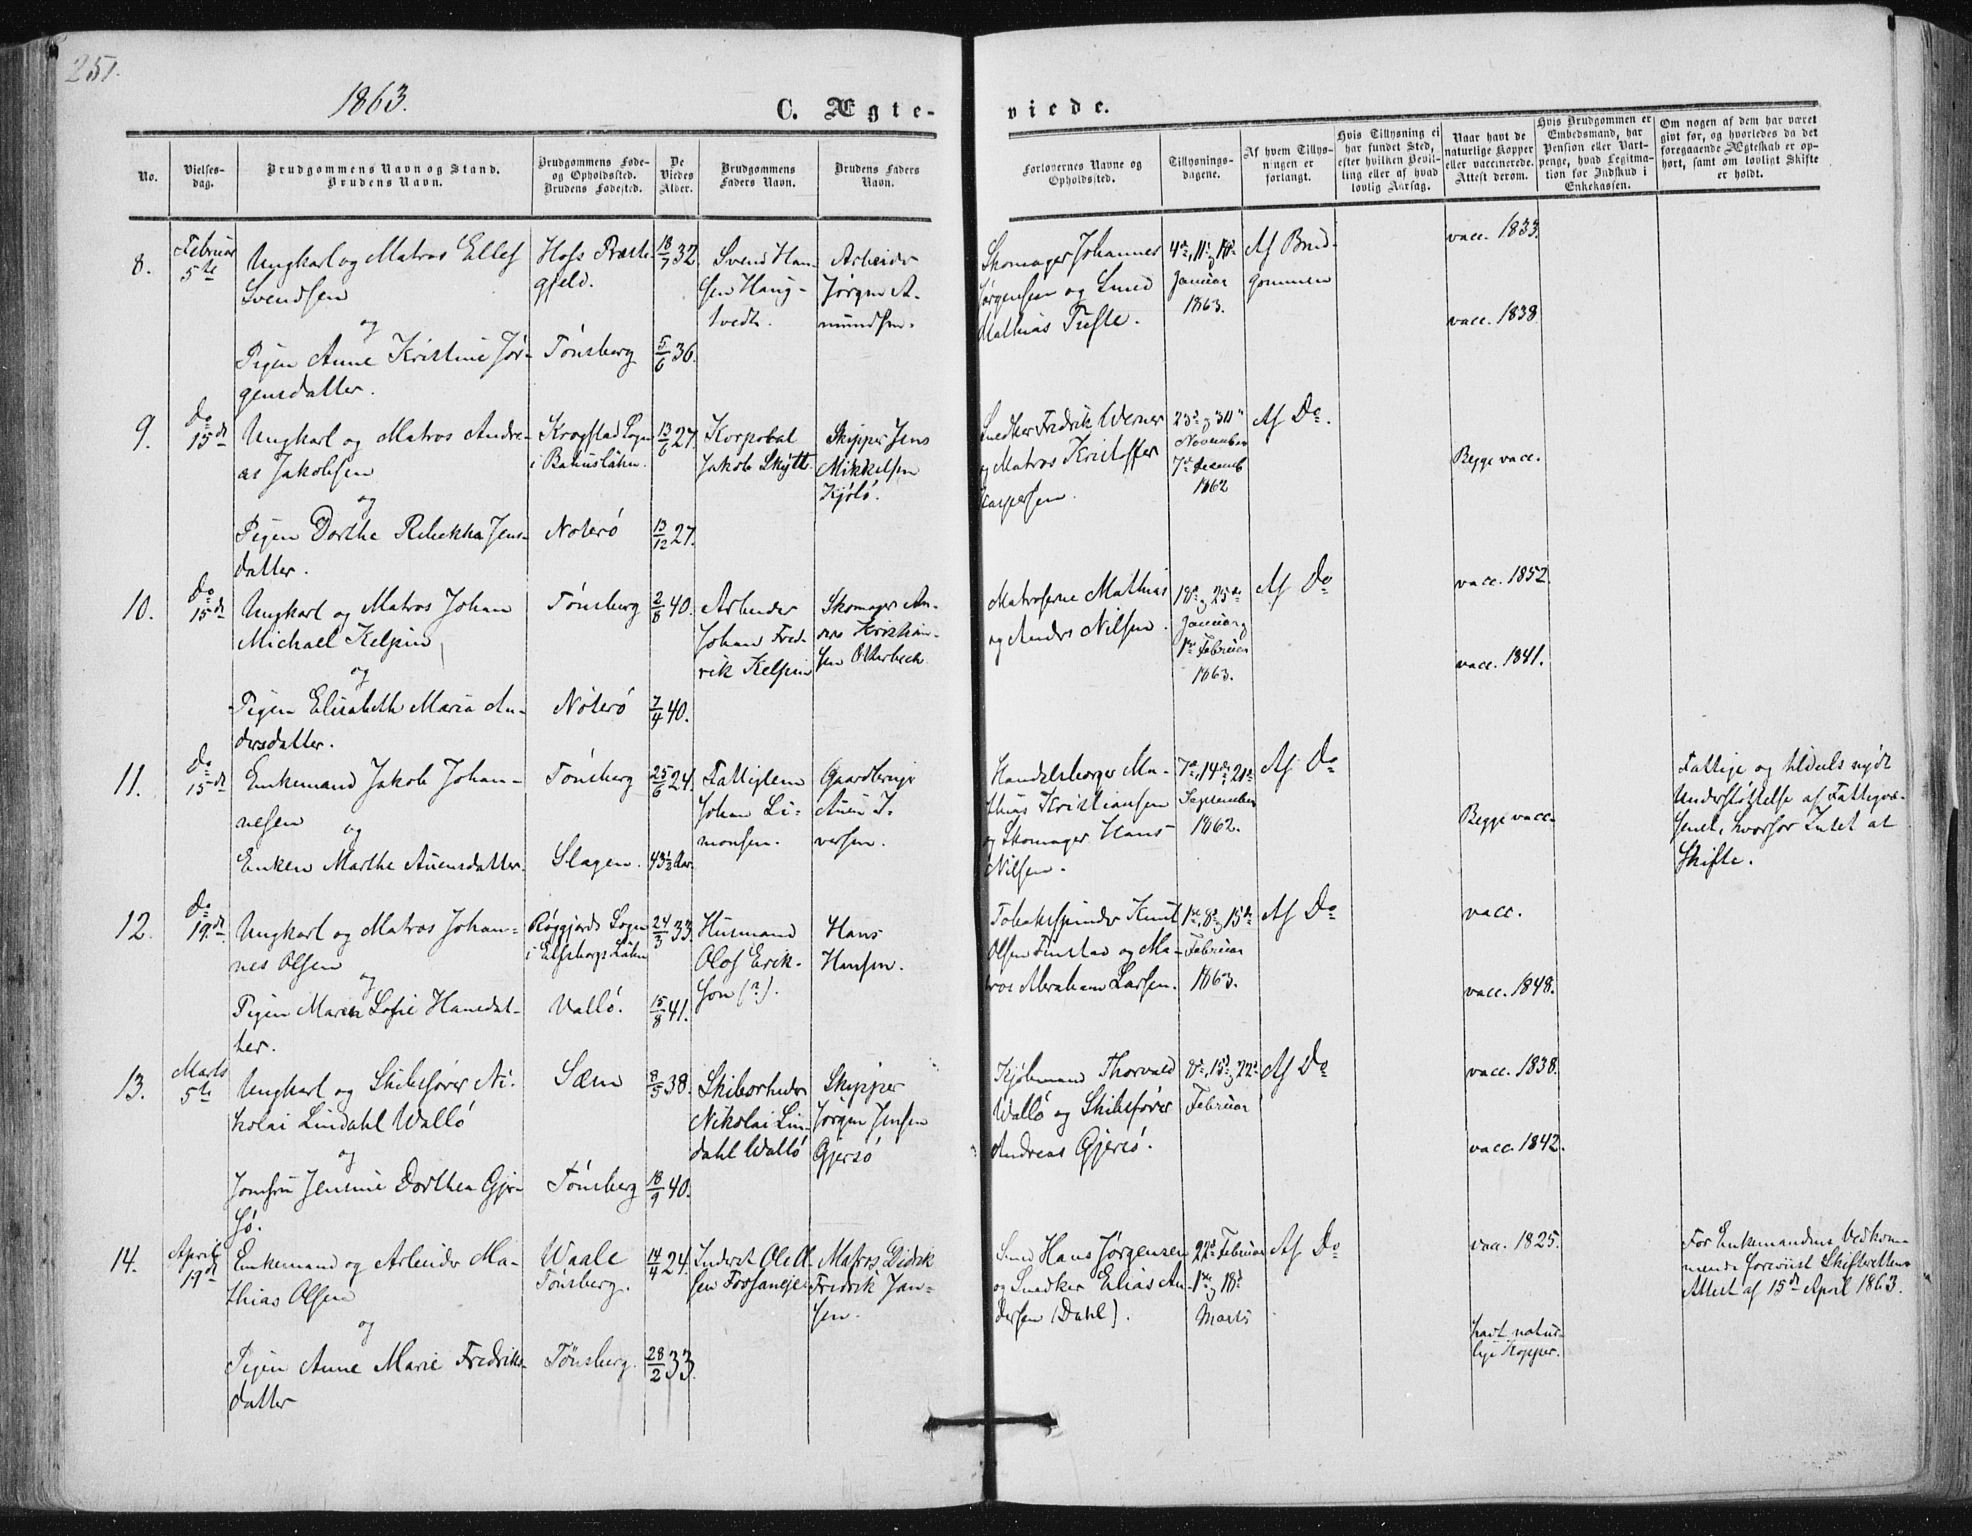 251.
1863.
C. Ægte-
viede.
No.
Vielses-
dag.
Brudgommens Navn og Stand.
Brudens Navn.
Brudgommens Føde-
og Opholdssted.
Brudens Fødested.
De
Viedes
Alder.
Brudgommens
Faders Navn.
Brudens Faders
Navn.
Forlovernes Navne og
Opholdssted.
Tillysnings-
dagene.
Af hvem Tillys-
ningen er
forlangt.
Hvis Tillysning ei
har fundet Sted,
efter hvilken Bevil-
ling eller af hvad
lovlig Aarsag.
Naar havt de
naturlige Kopper
eller vaccinerede.
Attest derom.
Hvis Brudgommen er
Embedsmand, har
Pension eller Vart-
penge, hvad Legitima-
tion for Indskud i
Enkekassen.
Om nogen af dem har været
gift før, og hvorledes da det
foregaaende Ægteskab er op-
hørt, samt om lovligt Skifte
er holdt.
8.
Februar
5te
Ungkarl og Matros Ellef
Svendsen
og
Pigen Anne Kristine Jør-
gensdatter.
Hofs Præste-
gjeld.
Tönsberg
18/7 32.
5/6 36.
Svend Han-
sen Haug-
tvedt.
Arbeider
Jørgen A-
mundsen.
Skomager Johannes
Jørgensen og Smed
Mathias Tufte.
4de, 11te & 18de
Januar
1863.
Af Brud-
gommen
vacc. 1833.
vacc. 1838
9.
Do
15de
Ungkarl og Matros Andre-
as Jakobsen
og
Pigen Dorthe Rebekka Jens-
datter.
Krogstad Sogn
i Bahuslähn.
Noterö
13/6 27.
13/12 27.
Korporal
Jakob Skytt.
Skipper Jens
Mikkelsen
Kjölö.
Snedker Fredrik Werner
og Matros Kristoffer
Kaspersen.
23de & 30te
November
7de Decemb
1862
Af Do.
Begge vacc.
10.
Do
15de
Ungkarl og Matros Johan
Michael Kelpin
og
Pigen Elisabeth Maria An-
dersdatter.
Tönsberg
Nöterö
2/8 40.
7/4 40.
Arbeider
Johan Fred-
rik Kelpin
Skomager An-
ders Kristian-
sen Otterbech
Matroserne Mathias
og Anders Nilsen.
18de & 25de
Januar &
1ste Februar
1863.
Af Do
vacc. 1852.
vacc. 1841.
11.
Do
15de
Enkemand Jakob Johan-
nesen
og
Enken Marthe Auensdatter.
Tönsberg
Slagen.
25/6 24.
43½ Aar.
Fattiglem
Johan Si-
monsen.
Gaardbruger
Auen I-
versen.
Handelsborger Ma-
thias Kristiansen
og Skomager Hans
Nilsen.
7de, 14de, 21de
September
1862.
Af Do
Begge vacc.
Fattige og tildels nydt
Understøttelse af Fattigvæ-
senet, hvorfor Intet at
Skifte.
12.
Do
19de
Ungkarl og Matros Johan-
nes Olsen
og
Pigen Maren Sofie Hansdat-
ter.
Röggjerds Sogn
i Elfsborgs Lähn
Vallö.
24/3 33.
15/8 41.
Husmand
Olof Erik-
son (?).
Hans
Hansen.
Tobakspinder Knut
Olsen Finstad og Ma-
tros Abraham Larsen.
1ste, 8de & 15de
Februar
1863.
Af Do
vacc.
vacc. 1848.
13.
Marts
5te
Ungkarl og Skibsfører Ni-
kolai Lindahl Wallö
og
Jomfru Jensine Dorthea Gjer-
sö.
Sæm
Tönsberg
8/5 38.
18/9 40.
Skibsrheder
Nikolai Lin-
dahl Wallö
Skipper
Jörgen Jensen
Gjersö
Kjöbmand Thorvald
Wallö og Skibsfører
Andreas Gjersö.
8de, 15de & 22de
Februar
Af Do
vacc. 1838.
vacc. 1842.
14.
April
19de
Enkemand og Arbeider Ma-
thias Olsen
og
Pigen Anne Marie Fredriks-
datter
Waale
Tönsberg.
Tönsberg.
14/4 24.
28/2 33.
Inderst Ole Ol-
sen
Matros Didrik
Fredrik Jan-
sen.
Smed Hans Jørgensen
og Snedker Elias An-
dersen (Dahl).
22de Februar
1ste & 18de
Marts
Af Do
vacc. 1825.
havt natur-
lige Kopper.
For Enkemandens Vedkom-
mende foreviist Skifterettens
Attest af 15de April 1863.